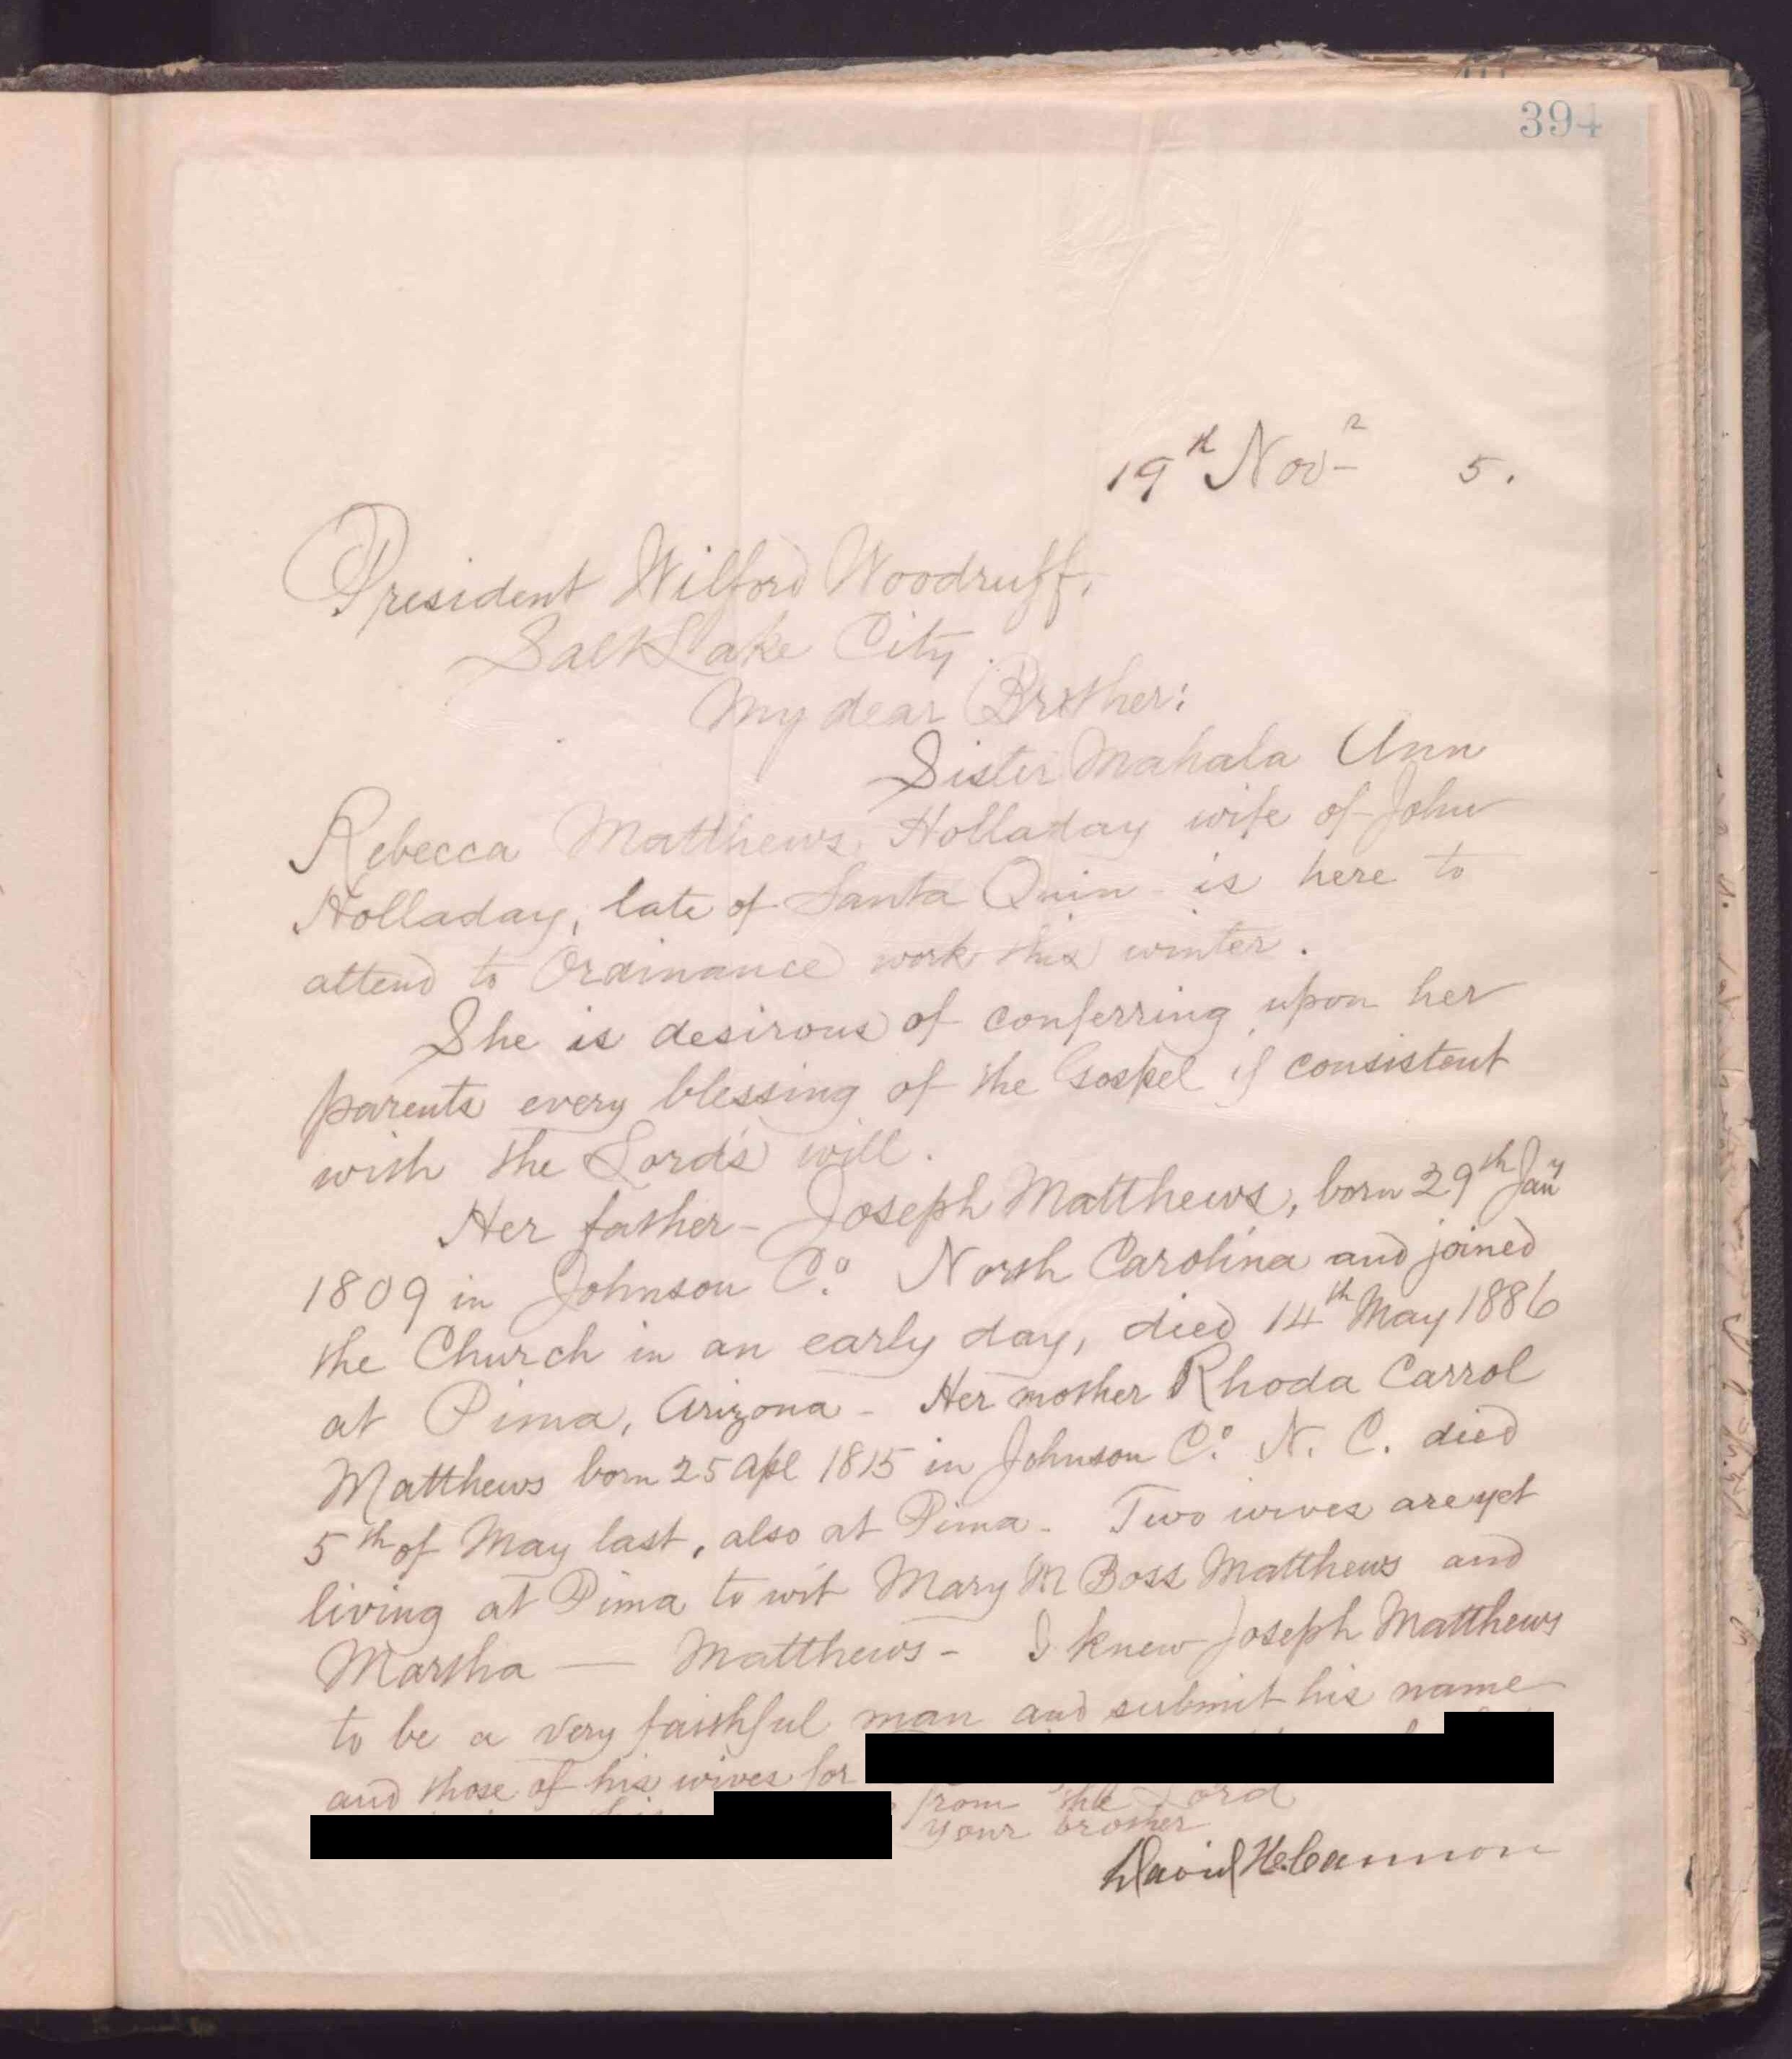 394
19th Nov- 5.
President Wilford Woodruff,
Salt Lake City.
My dear Brother:
Sister Mahala Ann
Rebecca Matthews Holladay wife of John
Holladay, late of Santa Quin is here to
attend to Ordinance work this winter.
She is desirous of conferring upon her
parents every blessing of the Gospel if consistent
with the Lord's will.
Her father - Joseph Matthews, born 29th Jany
1809 in Johnson Co. North Carolina and joined
the Church in an early day, died 14th May 1886
at Pima, Arizona - Her mother Rhoda Carrol
Matthews born 25 Apl 1815 in Johnson Co. N. C. died
5th of May last, also at Pima - Two wives are yet
living at Pima to wit Mary M Boss Matthews and
Martha — Matthews - I knew Joseph Matthews
to be a very faithful man and submit his name
and those of his wives for
from the Lord
your brother
David H. Cannon